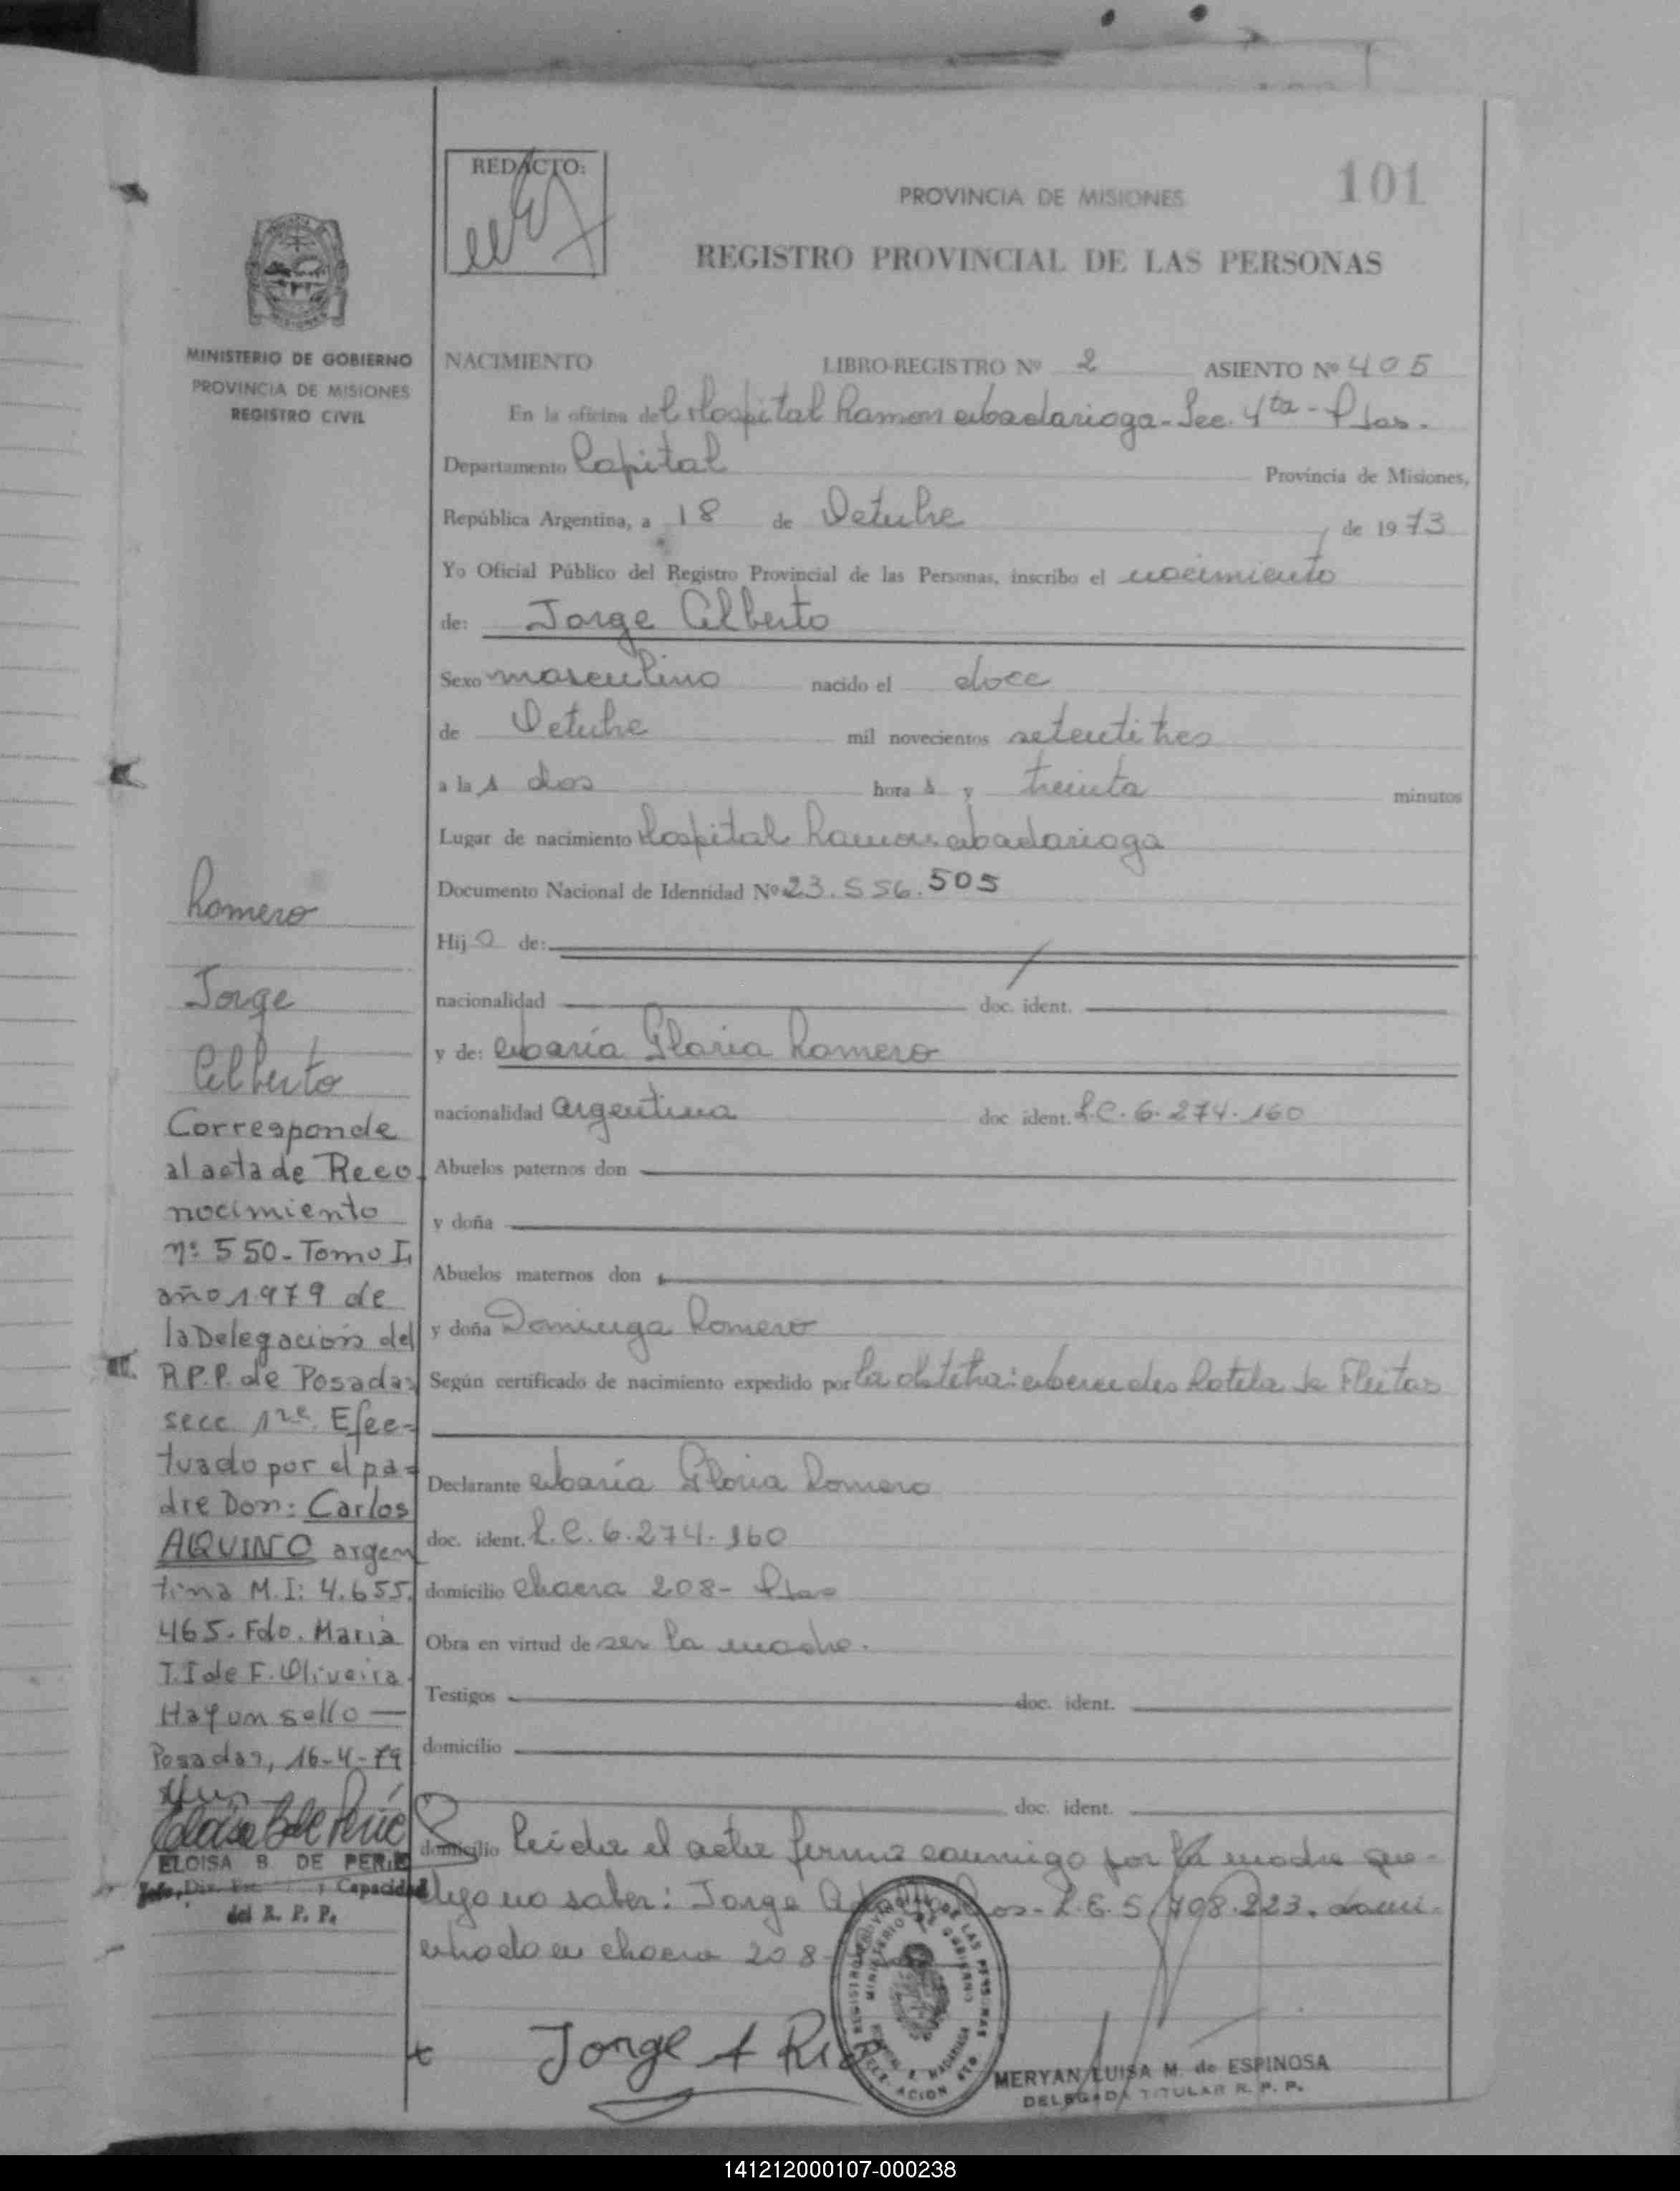 REDACTO:
PROVINCIA DE MISIONES
101
REGISTRO PROVINCIAL DE LAS PERSONAS
MINISTERIO DE GOBIERNO
PROVINCIA DE MISIONES
REGISTRO CIVIL
NACIMIENTO LIBRO-REGISTRO Nº 2 ASIENTO Nº 405
En la oficina del Hospital Ramon Madariaga - Sec. 4ta - Pdas.
Departamento Capital Provincia de Misiones,
República Argentina, a 18 de Octubre de 1973
Yo Oficial Público del Registro Provincial de las Personas, inscribo el nacimiento
de: Jorge Alberto
Sexo masculino nacido el doce
de Octubre mil novecientos setentitres
a las dos horas y treinta minutos
Lugar de nacimiento Hospital Ramon Madariaga
Documento Nacional de Identidad Nº 23.556.505
Hijo de:
nacionalidad doc. ident.
y de: María Gloria Romero
nacionalidad argentina doc. ident. L.C. 6.274.160
Abuelos paternos don
y doña
Abuelos maternos don
y doña Dominga Romero
Según certificado de nacimiento expedido por la obstetra: Mercedes Rotela de Fleitas
Declarante María Gloria Romero
doc. ident. L.C. 6.274.160
domicilio chacra 208 - Pdas
Obra en virtud de ser la madre.
Testigos doc. ident.
domicilio
doc. ident.
domicilio Leida el acta firma conmigo por la madre que
dijo no saber: Jorge L.E. 5.708.223. domi-
ciliado en chacra 208
Jorge A Rios
MERYAN LUISA M. de ESPINOSA
DELEGADA TITULAR R. P. P.
Romero
Jorge
Alberto
Corresponde
al acta de Reco
nocimiento
nº 550 - Tomo I
año 1979 de
la Delegación del
R.P.P. de Posadas
secc 1ra. Efec-
tuado por el pa-
dre Don: Carlos
AQUINO argen
tino M.I: 4.655.
465. Fdo. Maria
T. I de F. Oliveira
Hay un sello —
Posadas, 16-4-79
ELOISA B. DE PERIE
Jefe, Div. Est. y Capacidad
del R. P. P.
141212000107-000238